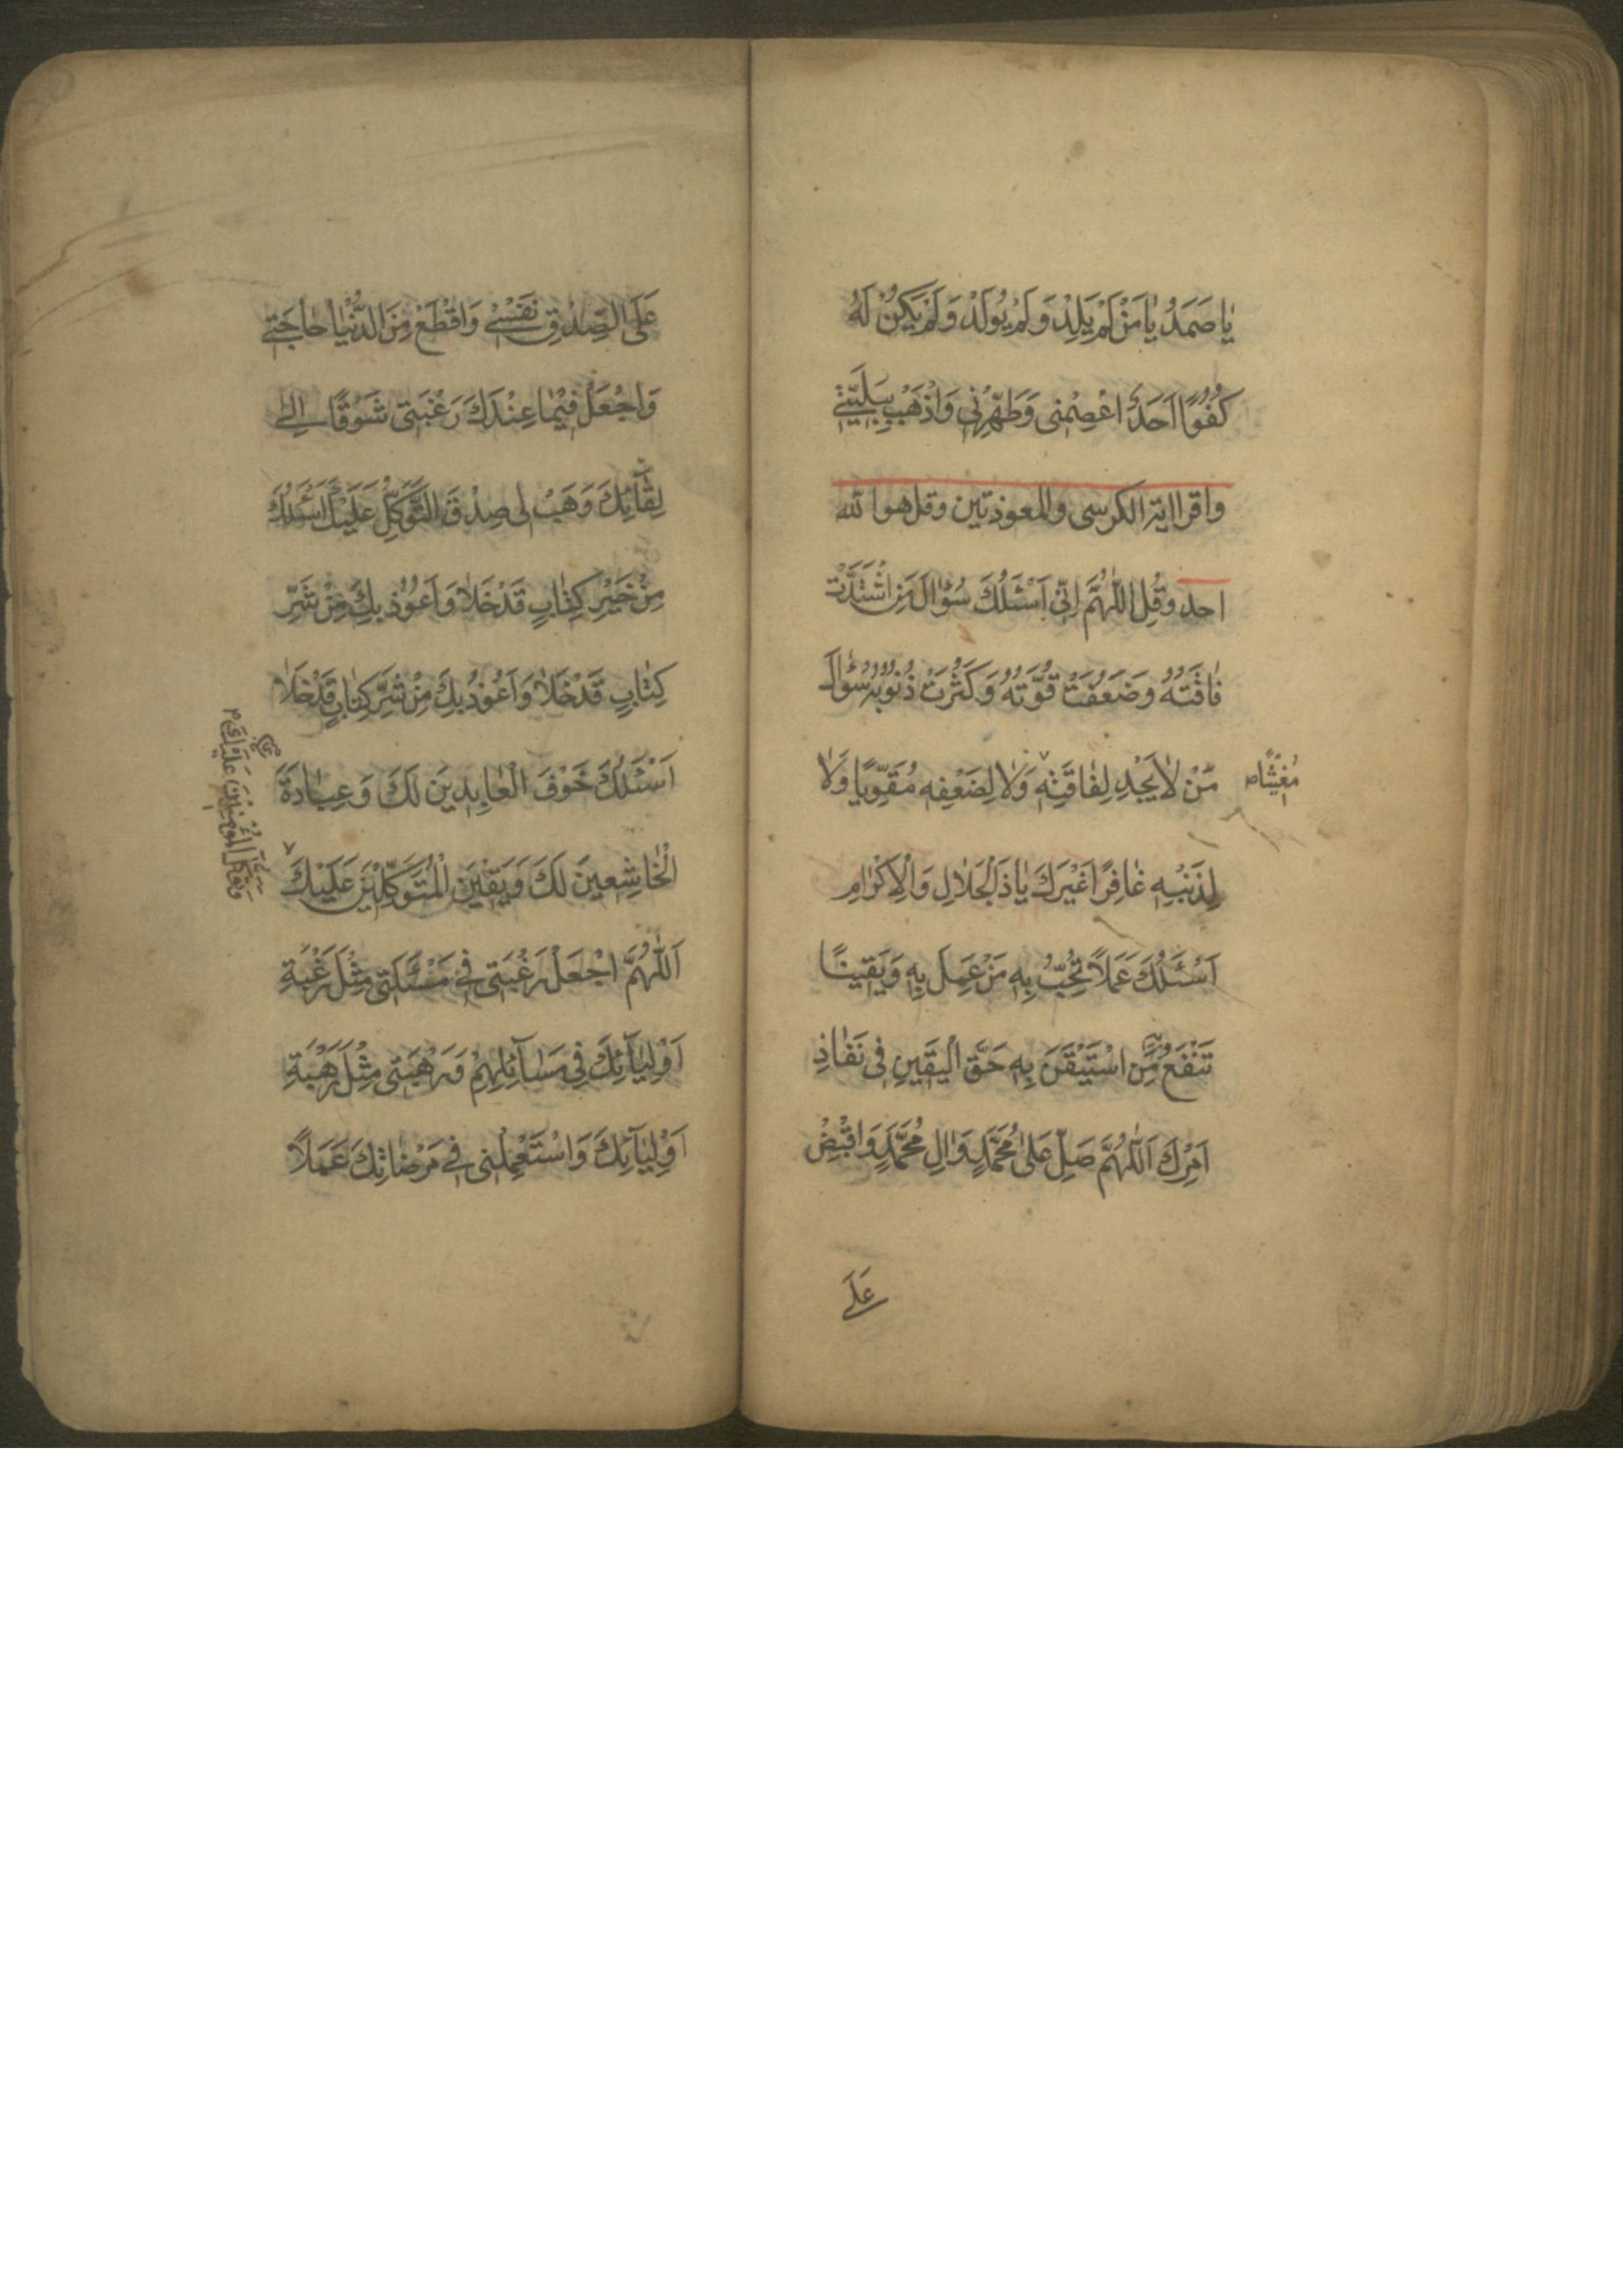 يٰا صَمَدُ يٰا مَنْ لَمْ يَلِدْ وَلَمْ يُولَدْ وَلَمْ يَكُنْ لَهُ
كُفُوًا اَحَدٌ اعْصِمْنِى وَطَهِّرْنِى وَاذْهَبْ بِبَلِيَّتِى
واقرا اية الكرسى والمعوذتين وقل هو الله
احد وقُلِ اللّٰهُمَّ اِنِّى اَسْئَلُكَ سُؤٰالَ مَنِ اشْتَدَّتْ
فٰاقَتُهُ وَضَعُفَتْ قُوَّتُهُ وَكَثُرَتْ ذُنُوبُهُ سُؤٰالَ
مَنْ لاٰ يَجِدُ لِفٰاقَتِهِ وَلاٰ لِضَعْفِهِ مُقَوِّيًا وَلاٰ
مُغيثًا
لِذَنْبِهِ غٰافِرًا غَيْرَكَ يٰا ذَاالْجَلاٰلِ وَالْاِكْرٰامِ
اَسْئَلُكَ عَمَلاً تُحِبُّ بِهِ مَنْ عَمِلَ بِهِ وَيَقِينًا
تَنْفَعُ مَنِ اسْتَيْقَنَ بِهِ حَقَّ الْيَقينِ فى نَفٰاذِ
اَمْرِكَ اَللّٰهُمَّ صَلِّ عَلٰى مُحَمَّدٍ وَاٰلِ مُحَمَّدٍ وَاقْبِضْ
عَلَى
عَلَى الصِّدْقِ نَفْسِى وَاقْطَعْ مِنَ الدُّنْيٰا حٰاجَتِى
وَاجْعَلْ فيمٰا عِنْدَكَ رَغْبَتِى شَوْقًا اِلٰى
لِقٰآئِكَ وَهَبْ لى صِدْقَ التَّوَكُّلِ عَلَيْكَ اَسْئَلُكَ
مِنْ خَيْرِ كِتٰابٍ قَدْ خَلاٰ وَاَعُوذُ بِكَ مِنْ شَرِّ
كِتٰابٍ قَدْ خَلاٰ وَاَعُوذُ بِكَ مِنْ شَرِّ كِتٰابٍ قَدْ خَلاٰ
اَسْئَلُكَ خَوْفَ الْعٰابِدينَ لَكَ وَعِبٰادَةَ
الْخٰاشِعينَ لَكَ وَيَقينَ الْمُتَوَكِّلينَ عَلَيْكَ
وَتَوَكُّلَ الْمُؤْمِنينَ عَلَيْكَ
اَللّٰهُمَّ اجْعَلْ رَغْبَتى فى مَسْئَلَتى مِثْلَ رَغْبَةِ
اَوْلِيٰآئِكَ فى مَسٰآئِلِهِمْ وَرَهْبَتى مِثْلَ رَهْبَةِ
اَوْلِيٰآئِكَ وَاسْتَعْمِلْنى فى مَرْضٰاتِكَ عَمَلاً